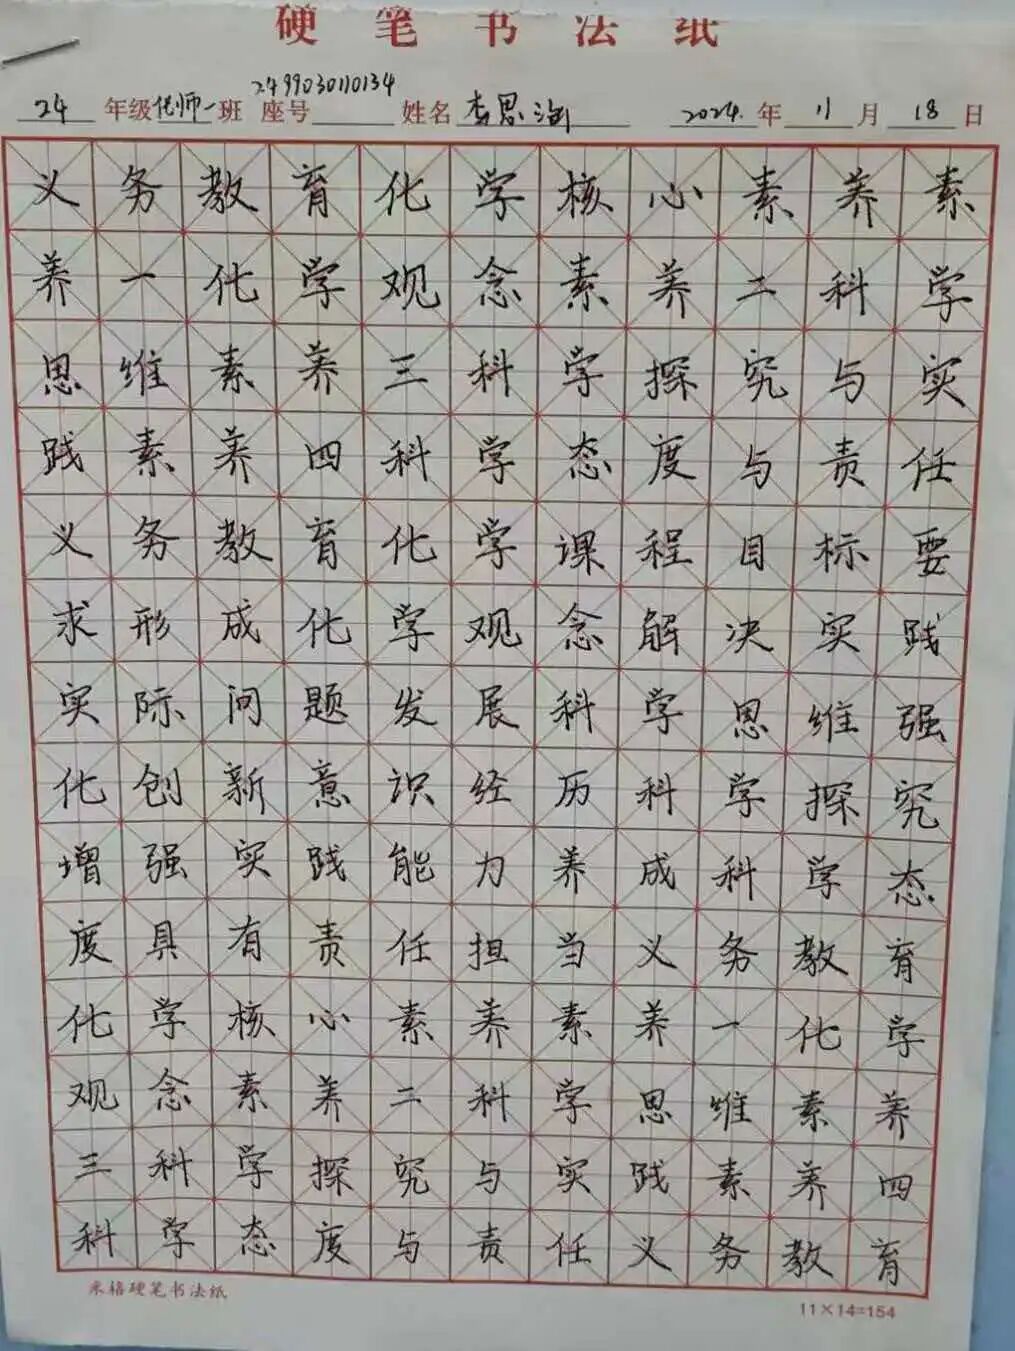 硬笔书法纸
2499030110134
24 年级 化师一 班 座号 姓名 李思 2024. 年 11 月 18 日
义务教育化学核心素养素
养一化学观念素养二科学
思维素养三科学探究与实
践素养四科学态度与责任
义务教育化学课程目标要
求形成化学观念解决实践
实际问题发展科学思维强
化创新意识经历科学探究
增强实践能力养成科学态
度具有责任担当义务教育
化学核心素养素养一化学
观念素养二科学思维素养
三科学探究与实践素养四
科学态度与责任义务教育
米格硬笔书法纸 11×14=154